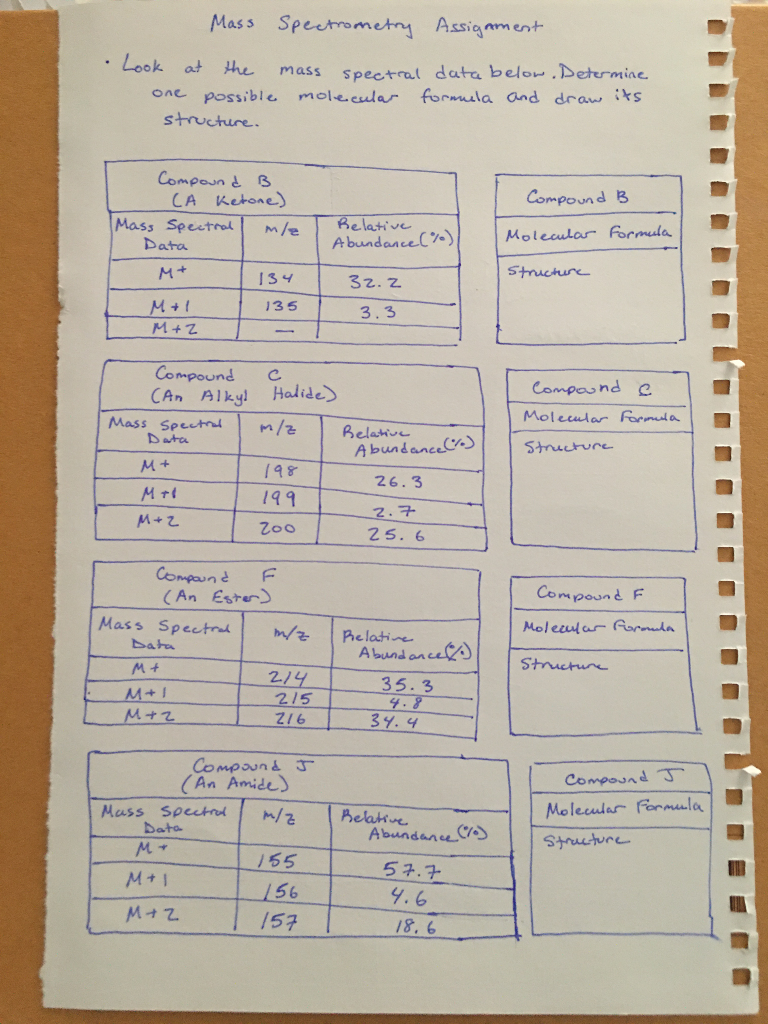 Mass Spectrometry Assignment
· Look at the mass spectral data below. Determine
one possible molecular formula and draw its
structure.
Compound B
(A Ketone)
Mass Spectral Data m/z Relative Abundance (%)
M+ 134 32.2
M+1 135 3.3
M+2 —
Compound B
Molecular Formula
Structure
Compound C
(An Alkyl Halide)
Mass Spectral Data m/z Relative Abundance (%)
M+ 198 26.3
M+1 199 2.7
M+2 200 25.6
Compound C
Molecular Formula
Structure
Compound F
(An Ester)
Mass Spectral Data m/z Relative Abundance (%)
M+ 214 35.3
M+1 215 4.8
M+2 216 34.4
Compound F
Molecular Formula
Structure
Compound J
(An Amide)
Mass Spectral Data m/z Relative Abundance (%)
M+ 155 57.7
M+1 156 4.6
M+2 157 18.6
Compound J
Molecular Formula
Structure